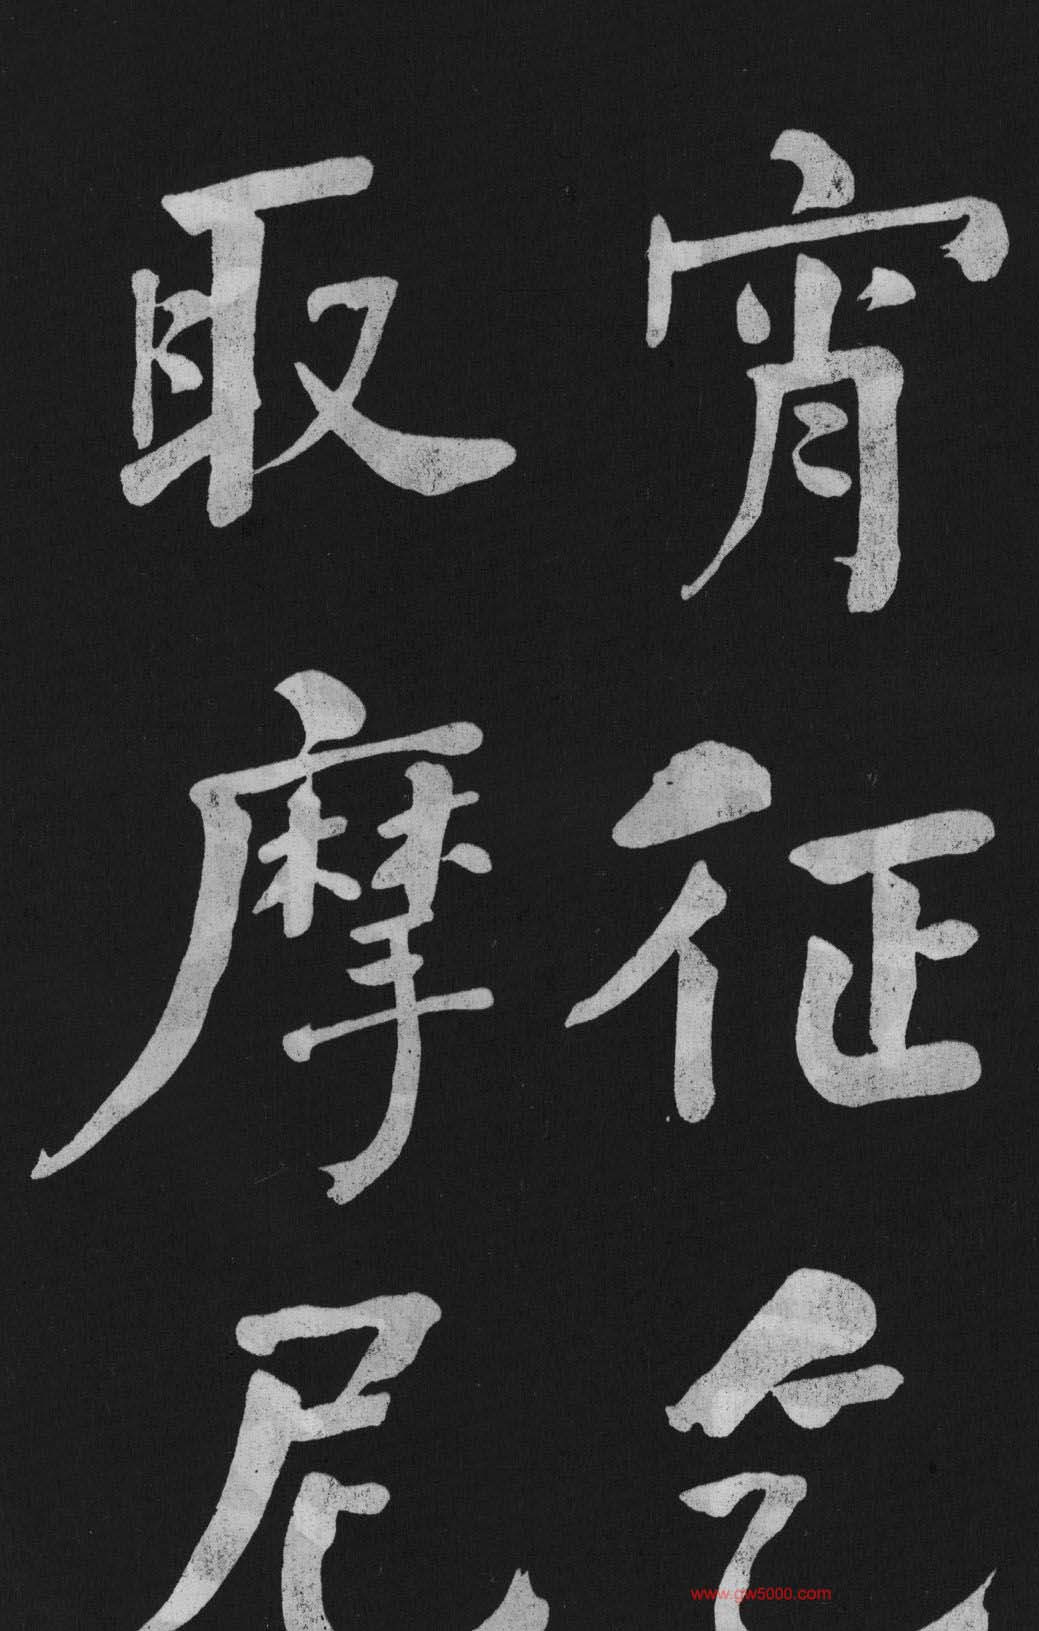 宵征乞
取摩尼
www.gw5000.com